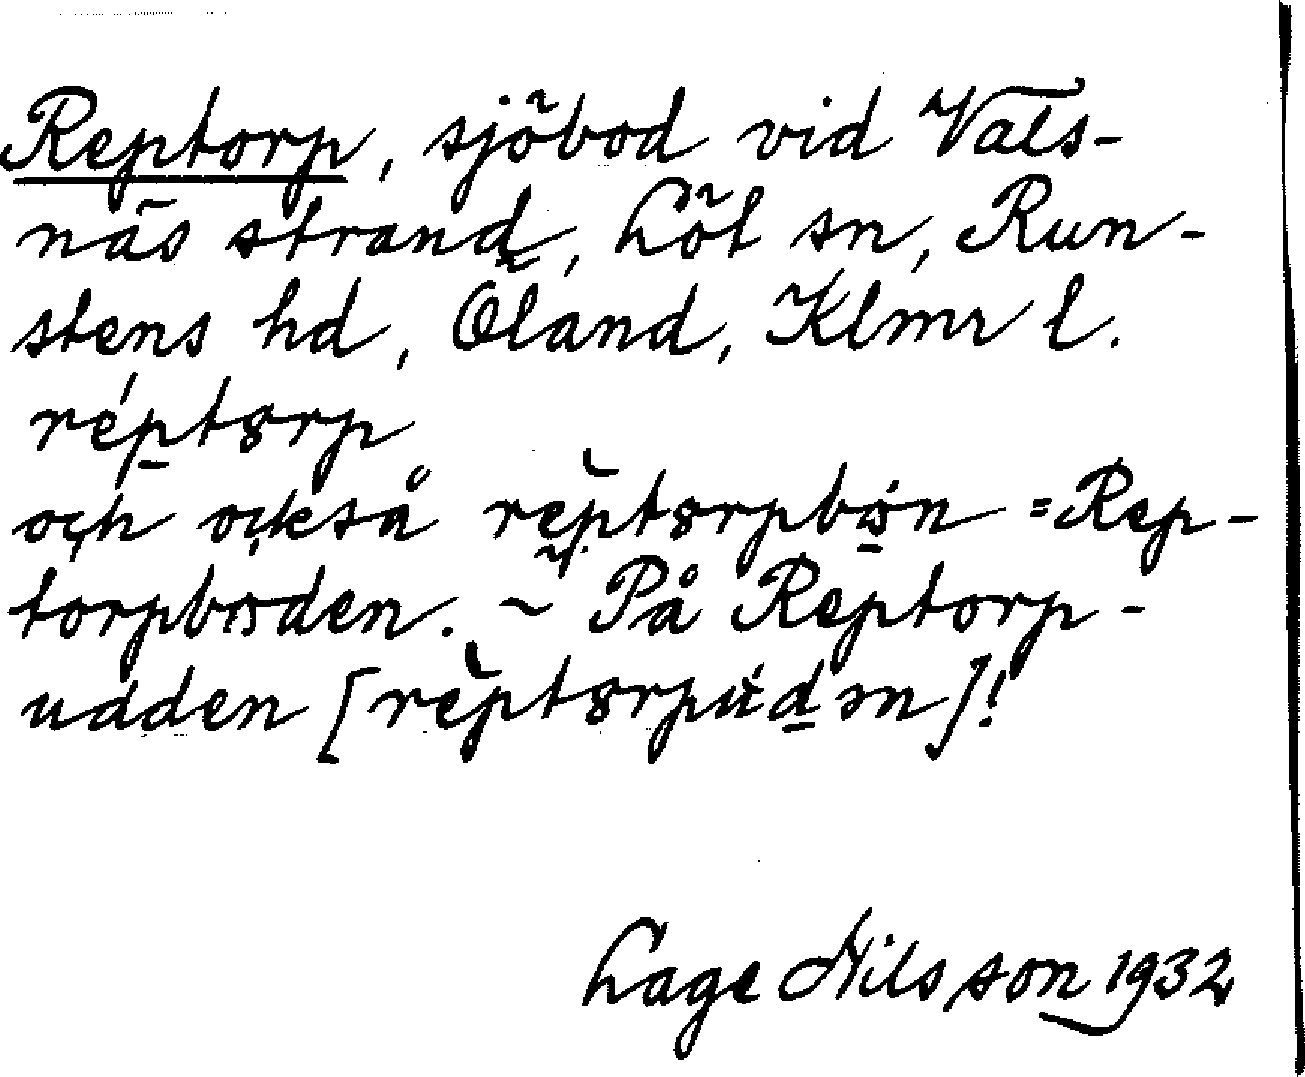 Reptorp, sjöbod vid Vals-
näs strand, Löt sn, Run-
stens hd, Öland, Klmr l.
réptorp
och också reptorpbon = Rep-
torpboden. ~ På Reptorp-
udden [reptorpudən]!
Lage Nilsson 1932